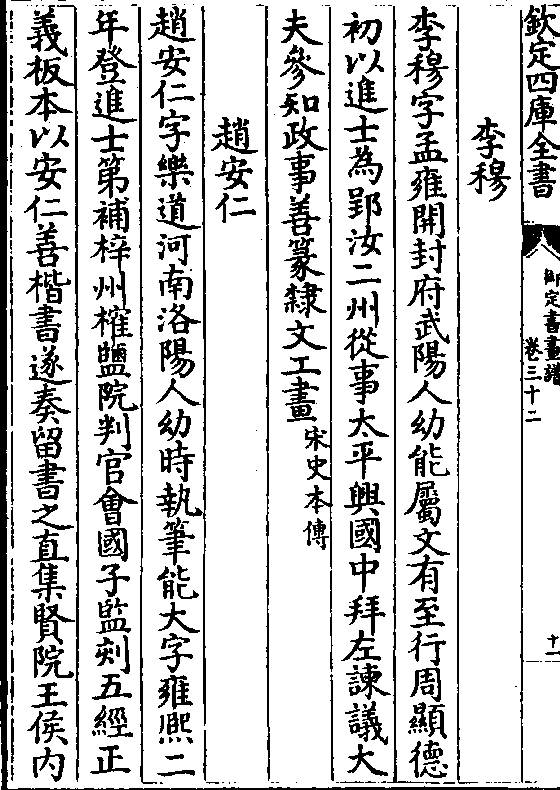 欽定四庫全書
御定書畫譜
卷三十二
十一
李穆
李穆字孟雍開封府武陽人幼能屬文有至行周顯德
初以進士為郢汝二州從事太平興國中拜左諫議大
夫參知政事善篆隸文工畫宋史本傳
趙安仁
趙安仁字樂道河南洛陽人幼時執筆能大字雍熙二
年登進士第補梓州榷鹽院判官會國子監刻五經正
義板本以安仁善楷書遂奏留書之直集賢院王侯內